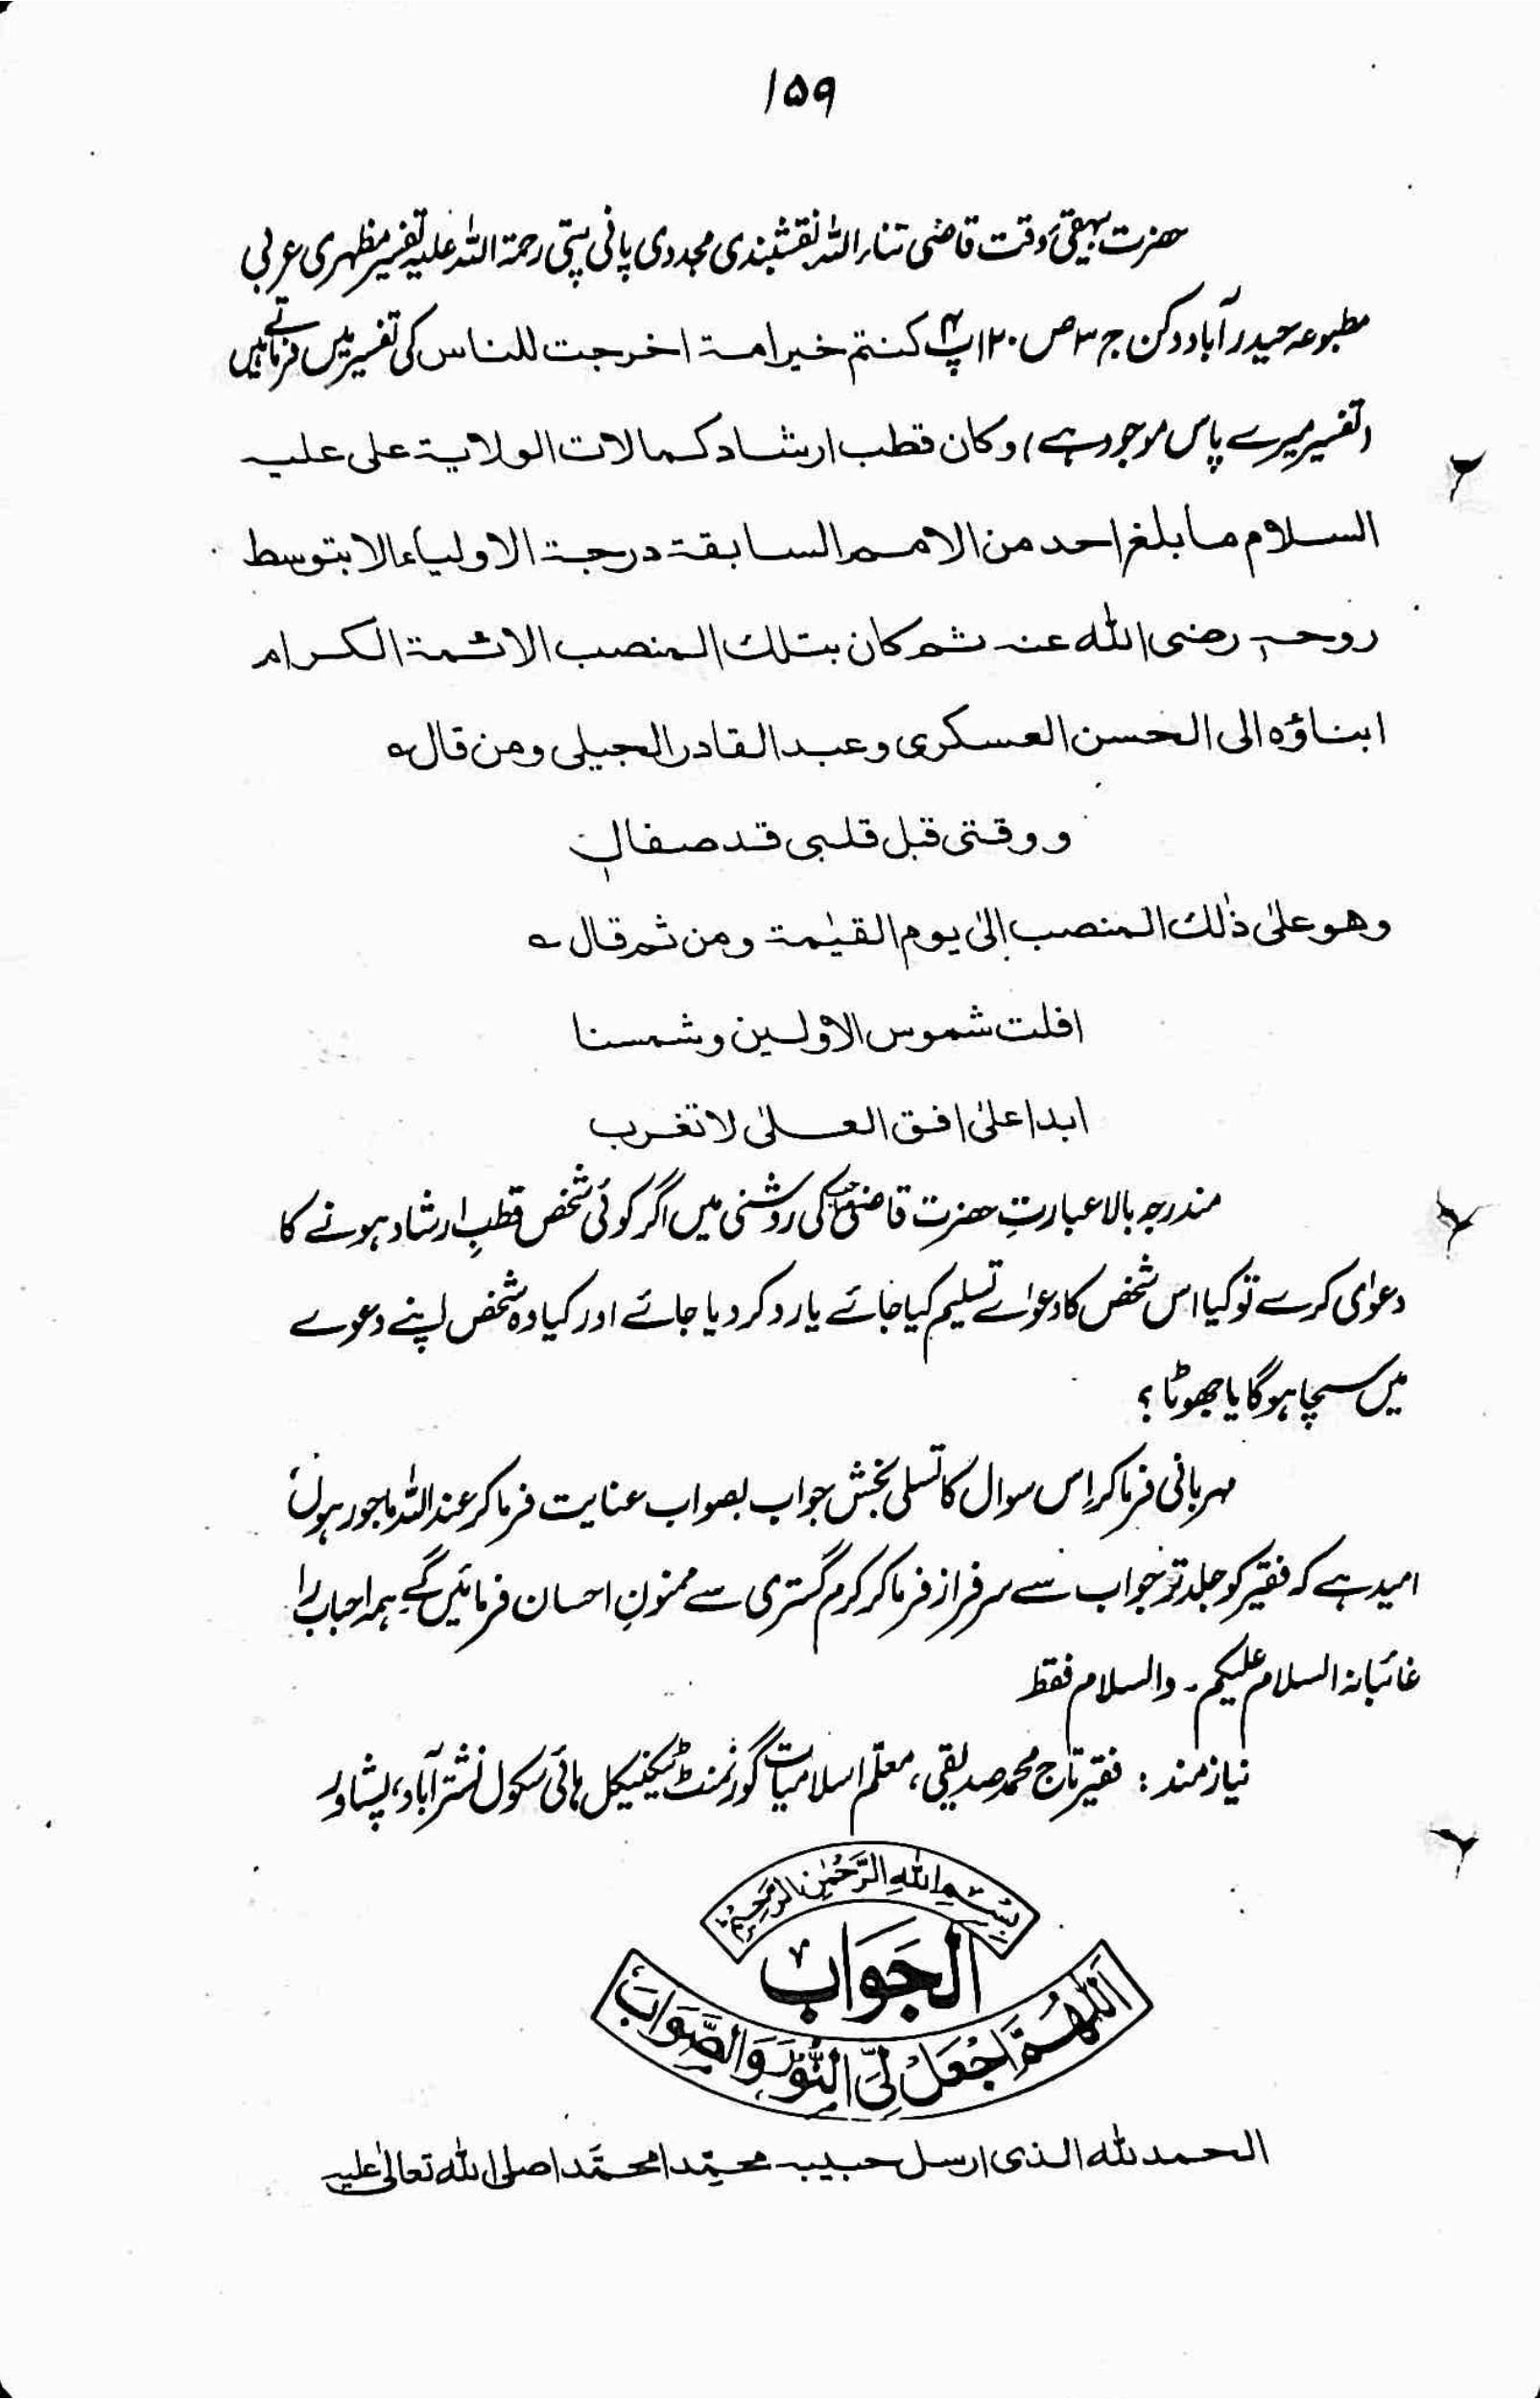 ۱۵۹
حضرت بیہقیِ وقت قاضی ثناء اللہ نقشبندی مجددی پانی پتی رحمۃ اللہ علیہ تفسیر مظہری عربی
مطبوعہ حیدر آباد دکن ج ۳ ص ۱۲۰ پ ۴ کنتم خیر امۃ اخرجت للناس کی تفسیر میں فرماتے ہیں
(تفسیر میرے پاس موجود ہے) وکان قطب ارشاد کمالات الولایۃ علی علیہ
السلام ما بلغ احد من الامم السابقۃ درجۃ الاولیاء الا بتوسط
روحہ رضی اللہ عنہ ثم کان بتلک المنصب الائمۃ الکرام
ابناؤہ الی الحسن العسکری وعبد القادر الجیلی ومن قال ؎
ووقتی قبل قلبی قد صفالی
وھو علیٰ ذٰلک المنصب الیٰ یوم القیٰمۃ ومن ثم قال ؎
افلت شموس الاولین وشمسنا
ابدا علیٰ افق العلیٰ لا تغرب
مندرجہ بالا عبارتِ حضرت قاضی صاحب کی روشنی میں اگر کوئی شخص قطبِ ارشاد ہونے کا
دعوٰی کرے تو کیا اس شخص کا دعوٰے تسلیم کیا جائے یا رد کر دیا جائے اور کیا وہ شخص اپنے دعوے
میں سچا ہوگا یا جھوٹا؟
مہربانی فرما کر اِس سوال کا تسلی بخش جواب بصواب عنایت فرما کر عند اللہ ماجور ہوں،
امید ہے کہ فقیر کو جلد تر جواب سے سرفراز فرما کر کرم گستری سے ممنونِ احسان فرمائیں گے ہمہ احباب را
غائبانہ السلام علیکم۔ والسلام فقط
نیازمند: فقیر تاج محمد صدیقی، معلّم اسلامیات گورنمنٹ ٹیکنیکل ہائی سکول نشتر آباد، پشاور
بِسْمِ اللهِ الرَّحْمٰنِ الرَّحِيْمِ
اَلجَوَابُ
اَللّٰهُمَّ اجْعَلْ لِيَ النُّوْرَ وَالصَّوَابَ
الحمد للہ الذی ارسل حبیبہ محمّدا محمّدا صلی اللہ تعالیٰ علیہ